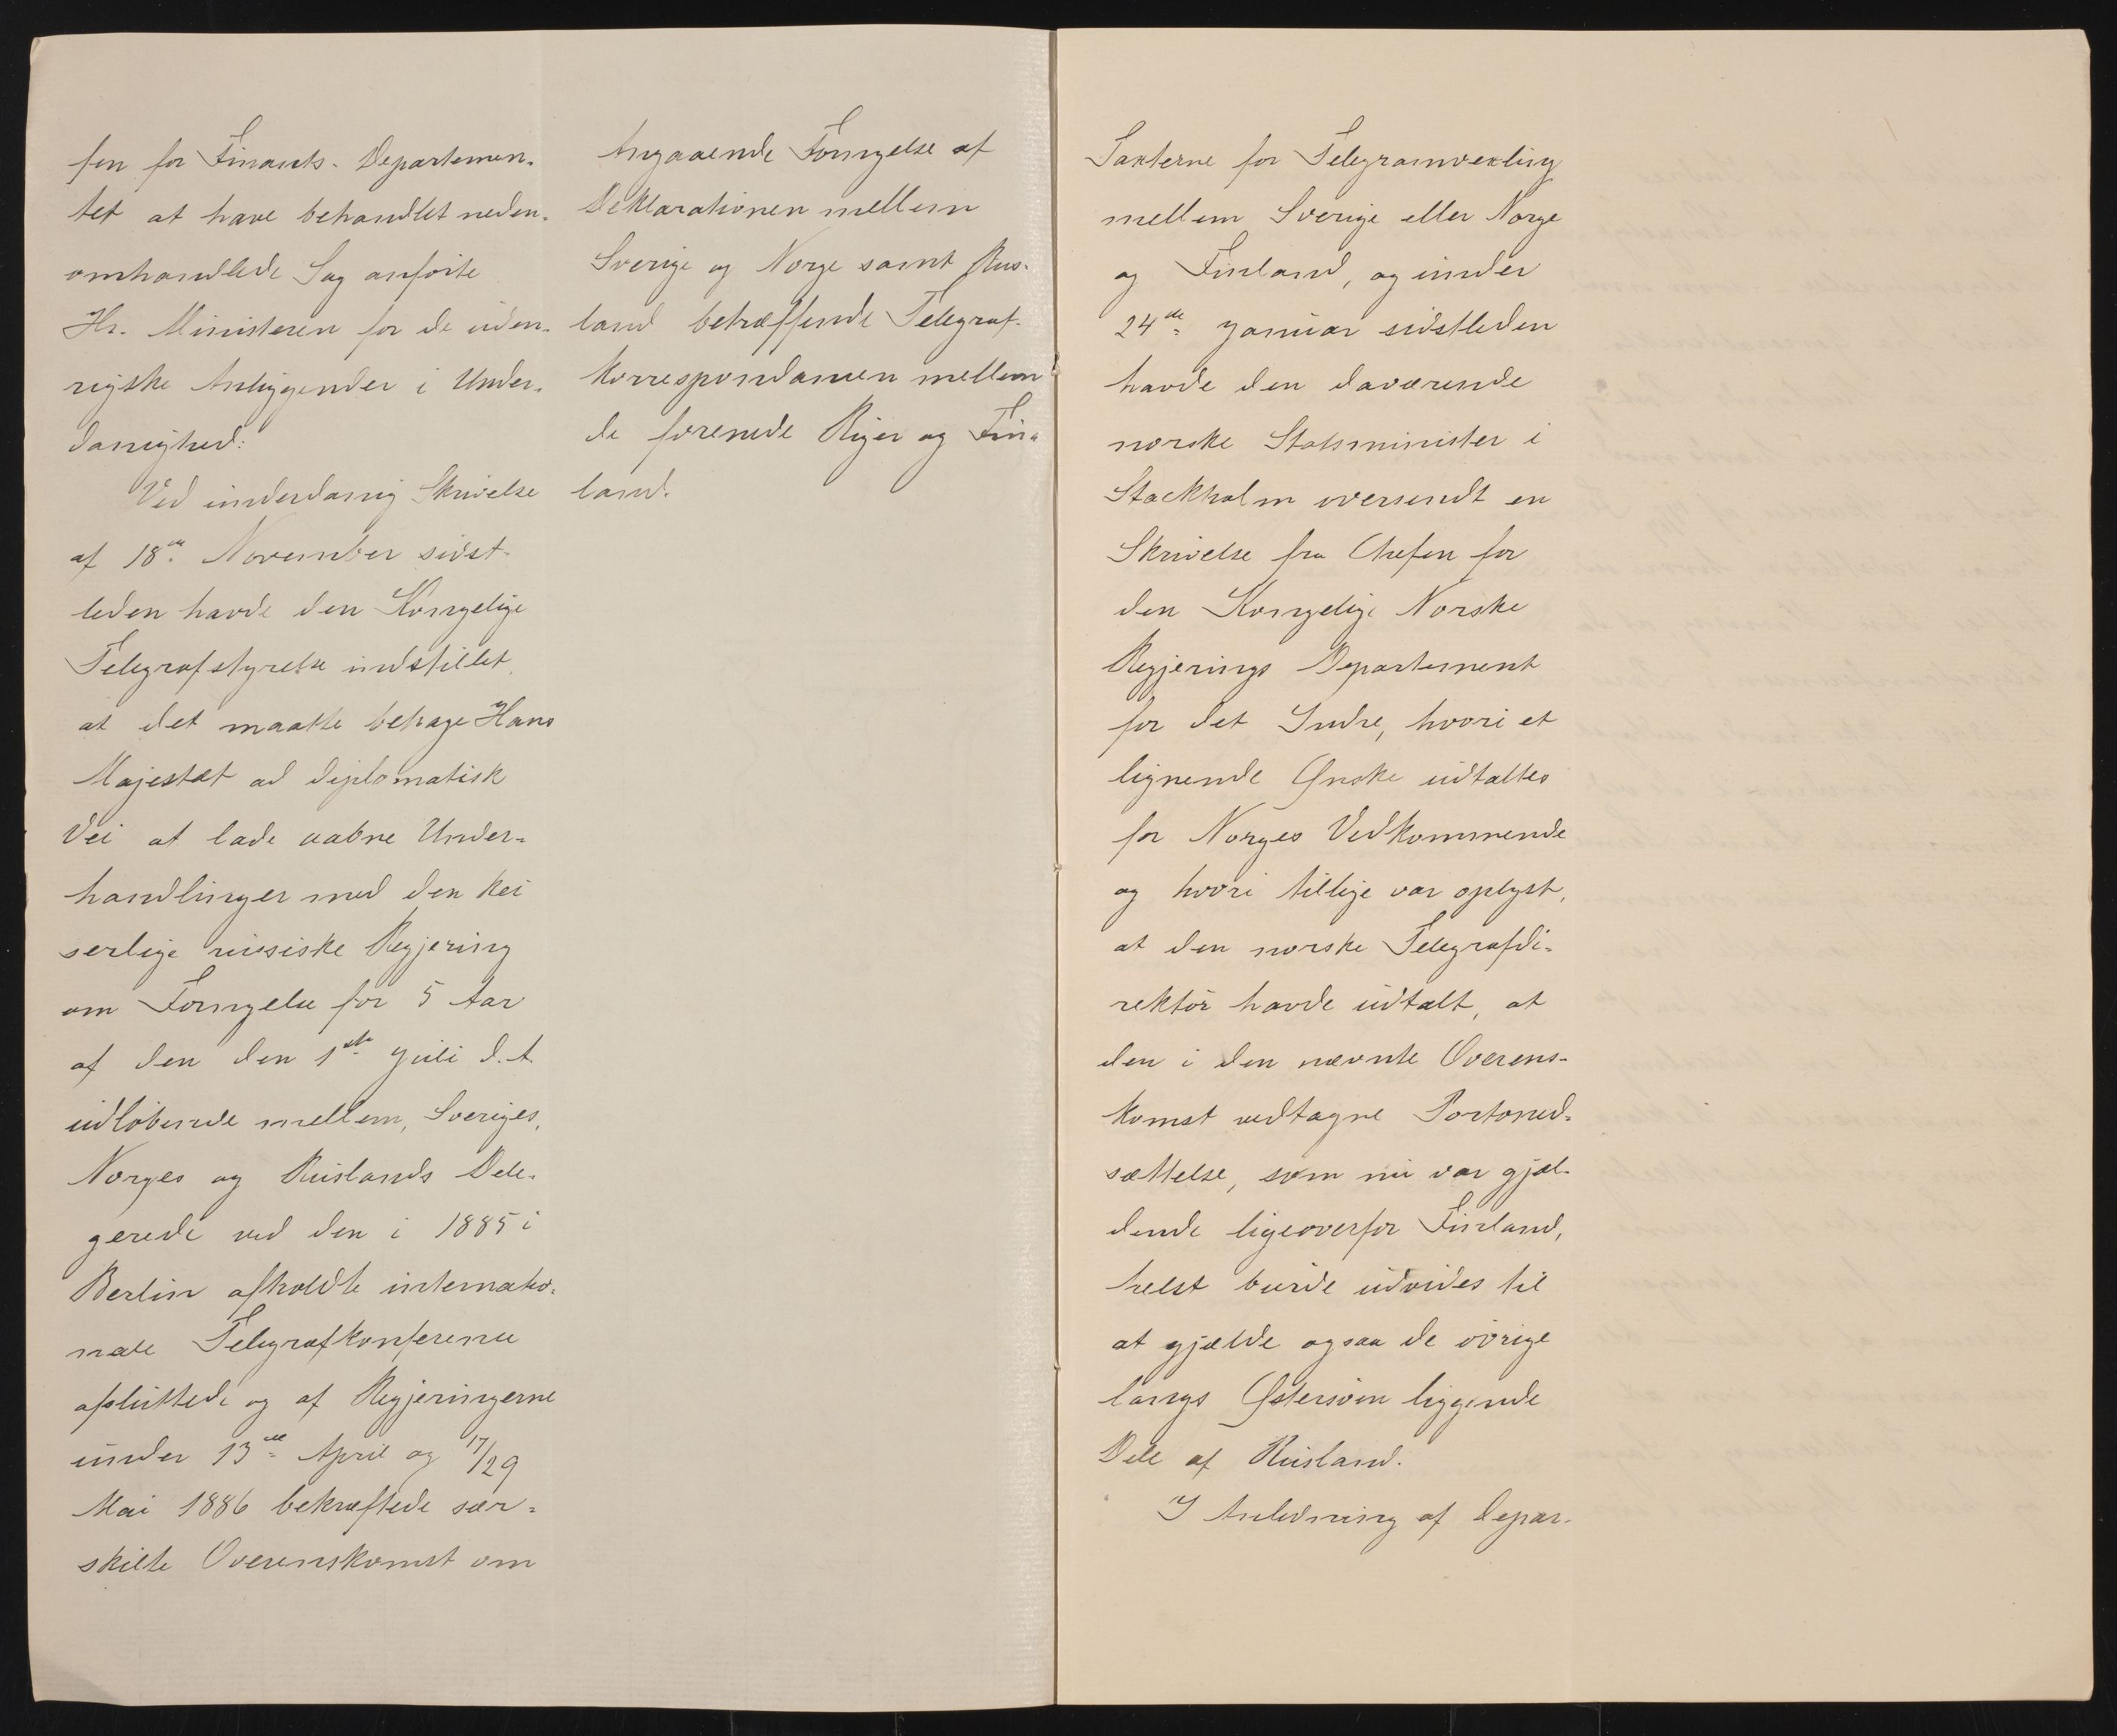 fen for Finants-Departemen-
tet at have behandlet neden-
omhandlede Sag anførte
Hr. Ministeren for de uden-
rigske Anliggender i Under-
danighed:
Ved underdanig Skrivelse
af 18de November sidst-
leden havde den Kongelige
Telegrafstyrelse indstillet,
at det maatte behage Hans
Majestæt ad diplomatisk
Vei at lade aabne Under-
handlinger med den kei
serlige russiske Regjering
om Fornyelse for 5 Aar
af den den 1ste Juli d. A.
udløbende mellem, Sveriges,
Norges og Ruslands Dele-
gerede ved den i 1885 i
Berlin afholdte internatio-
nale Telegrafkonference
afsluttede og af Regjeringerne
under 13de April og 17/29
Mai 1886 bekræftede sær-
skilte Overenskomst om
Angaaende Fornyelse af
Deklarationen mellem
Sverige og Norge samt Rus-
land betræffende Telegraf-
korrespondancen mellem
de forenede Riger og Fin-
land.
Taxterne for Telegramvexling
mellem Sverige eller Norge
og Finland, og under
24de Januar sidstleden
havde den daværende
norske Statsminister i
Stockholm oversendt en
Skrivelse fra Chefen for
den Kongelige Norske
Regjerings Departement
for det Indre, hvori et
lignende Ønske udtaltes
for Norges Vedkommende
og hvori tillige var oplyst,
at den norske Telegrafdi-
rektør havde udtalt, at
den i den nævnte Overens-
komst vedtagne Portoned-
sættelse, som nu var gjæl-
dende ligeoverfor Finland,
helst burde udvides til
at gjælde ogsaa de øvrige
langs Østersøen liggende
Dele af Rusland.
I Anledning af Depar-